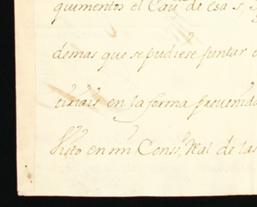 quimentos el Cav de esa s,
demas que se pudiese juntar
en la forma prevenida
Visto en mi Cons. Real de las